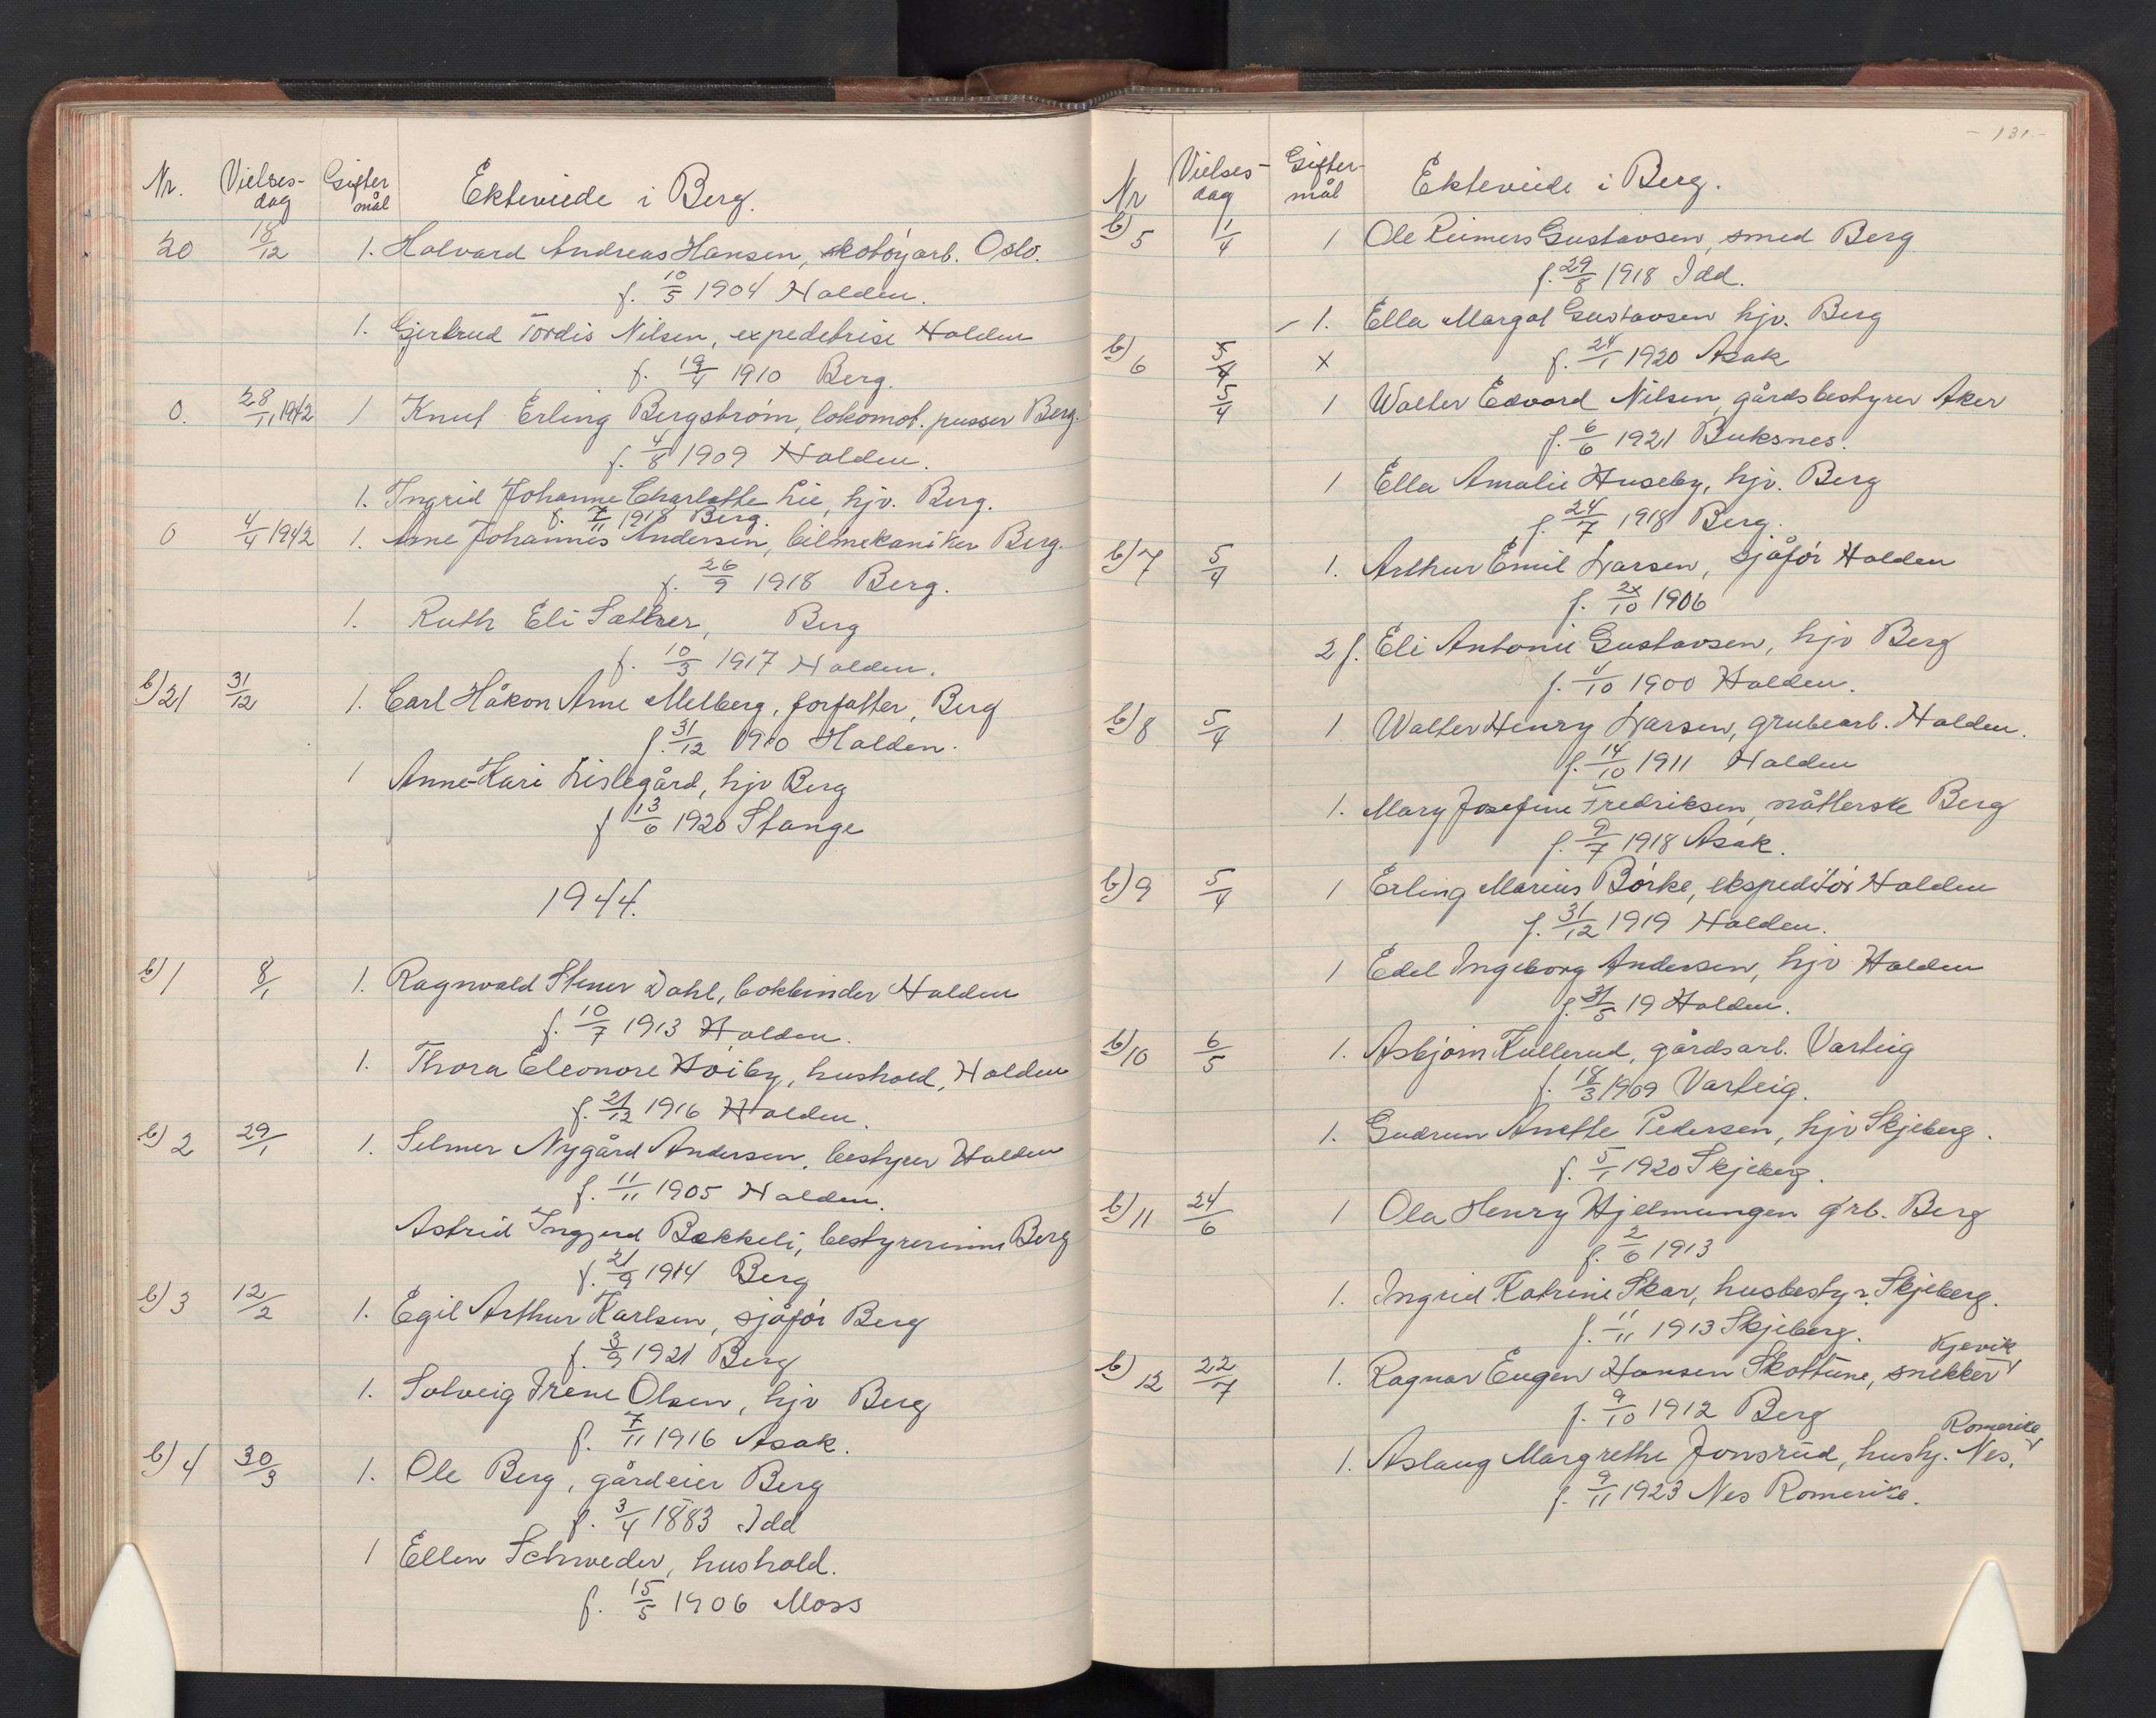 Nr. Vielses- Gifter
dag mål Ekteviede i Berg.
20 18/12 1. Halvard Andreas Hansen, skotøyarb. Oslo.
f. 10/5 1904 Halden.
1. Gjertrud Tordis Nilsen, expedetrise Halden
f. 19/4 1910 Berg.
0. 28/11 1942 1 Knut Erling Bergstrøm, lokomot. pusser Berg.
f. 4/8 1909 Halden.
1. Ingrid Johanne Charlotte Lie, hjv. Berg.
f. 7/11 1918 Berg.
0 4/4 1942 1. Arne Johannes Andersen, bilmekaniker Berg.
f. 26/9 1918 Berg.
1. Ruth Eli Sæther, Berg
f. 10/3 1917 Halden.
b) 21 31/12 1. Carl Håkon Arne Melberg, forfatter, Berg
f. 31/12 1910 Halden.
1 Anne-Kari Lislegård, hjv Berg
f 13/6 1920 Stange
1944.
b) 1 8/1 1. Ragnvald Stener Dahl, bokbinder Halden
f. 10/7 1913 Halden.
1. Thora Eleonore Høiby, hushold, Halden
f. 21/12 1916 Halden.
b) 2 29/1 1. Selmer Nygård Andersen, bestyrer Halden
f. 11/11 1905 Halden.
Astrid Ingjerd Bækkeli, bestyrerinne Berg
f. 21/9 1914 Berg
b) 3 12/2 1. Egil Arthur Karlsen, sjåfør Berg
f. 3/9 1921 Berg
1. Solveig Irene Olsen, hjv Berg
f. 7/11 1916 Asak.
b) 4 30/3 1. Ole Berg, gårdeier Berg
f. 3/4 1883 Idd
1 Ellen Schweder, hushold.
f. 15/5 1906 Moss
- 131 -
Nr Vielses- Gifter-
dag mål Ekteviede i Berg.
b) 5 1/4 1 Ole Reimers Gustavsen, smed Berg
f. 29/8 1918 Idd.
- 1. Ella Margot Gustavsen hjv. Berg
b) 6 5/4 x f. 24/1 1920 Asak
5/4 1 Walter Edvard Nilsen, gårdsbestyrer Aker
f. 6/6 1921 Buksnes.
1 Ella Amalie Huseby, hjv. Berg
f. 24/7 1918 Berg.
b) 7 5/4 1. Arthur Emil Larsen, sjåfør Halden
f. 2x/10 1906
2 f. Eli Antonie Gustavsen, hjv Berg
f. 4/10 1900 Halden.
b) 8 5/4 1 Walter Henry Larsen, grubearb. Halden.
f. 14/10 1911 Halden
1. Mary Josefine Fredriksen, nåtlerske Berg
f. 9/7 1918 Asak.
b) 9 5/4 1 Erling Marius Børke, ekspeditør Halden
f. 31/12 1919 Halden.
1 Edel Ingeborg Andersen, hjv Halden
f. 31/5 19 Halden.
b) 10 6/5 1. Asbjørn Kullerud, gårdsarb. Varteig
f. 18/3 1909 Varteig.
1. Gudrun Anette Pedersen, hjv Skjeberg.
f. 5/1 1920 Skjeberg.
b) 11 24/6 1 Ola Henry Hjelmungen grb. Berg
f. 2/6 1913
1. Ingrid Katrine Skar, husbestyr. Skjeberg.
f. 11/11 1913 Skjeberg.
Kjevik
b) 12 22/7 1. Ragnar Eugen Hansen Skottune, snekker
f. 9/10 1912 Berg
Romerike
1. Aslaug Margrethe Jonsrud, hushj. Nes.
f. 9/11 1923 Nes Romerike.